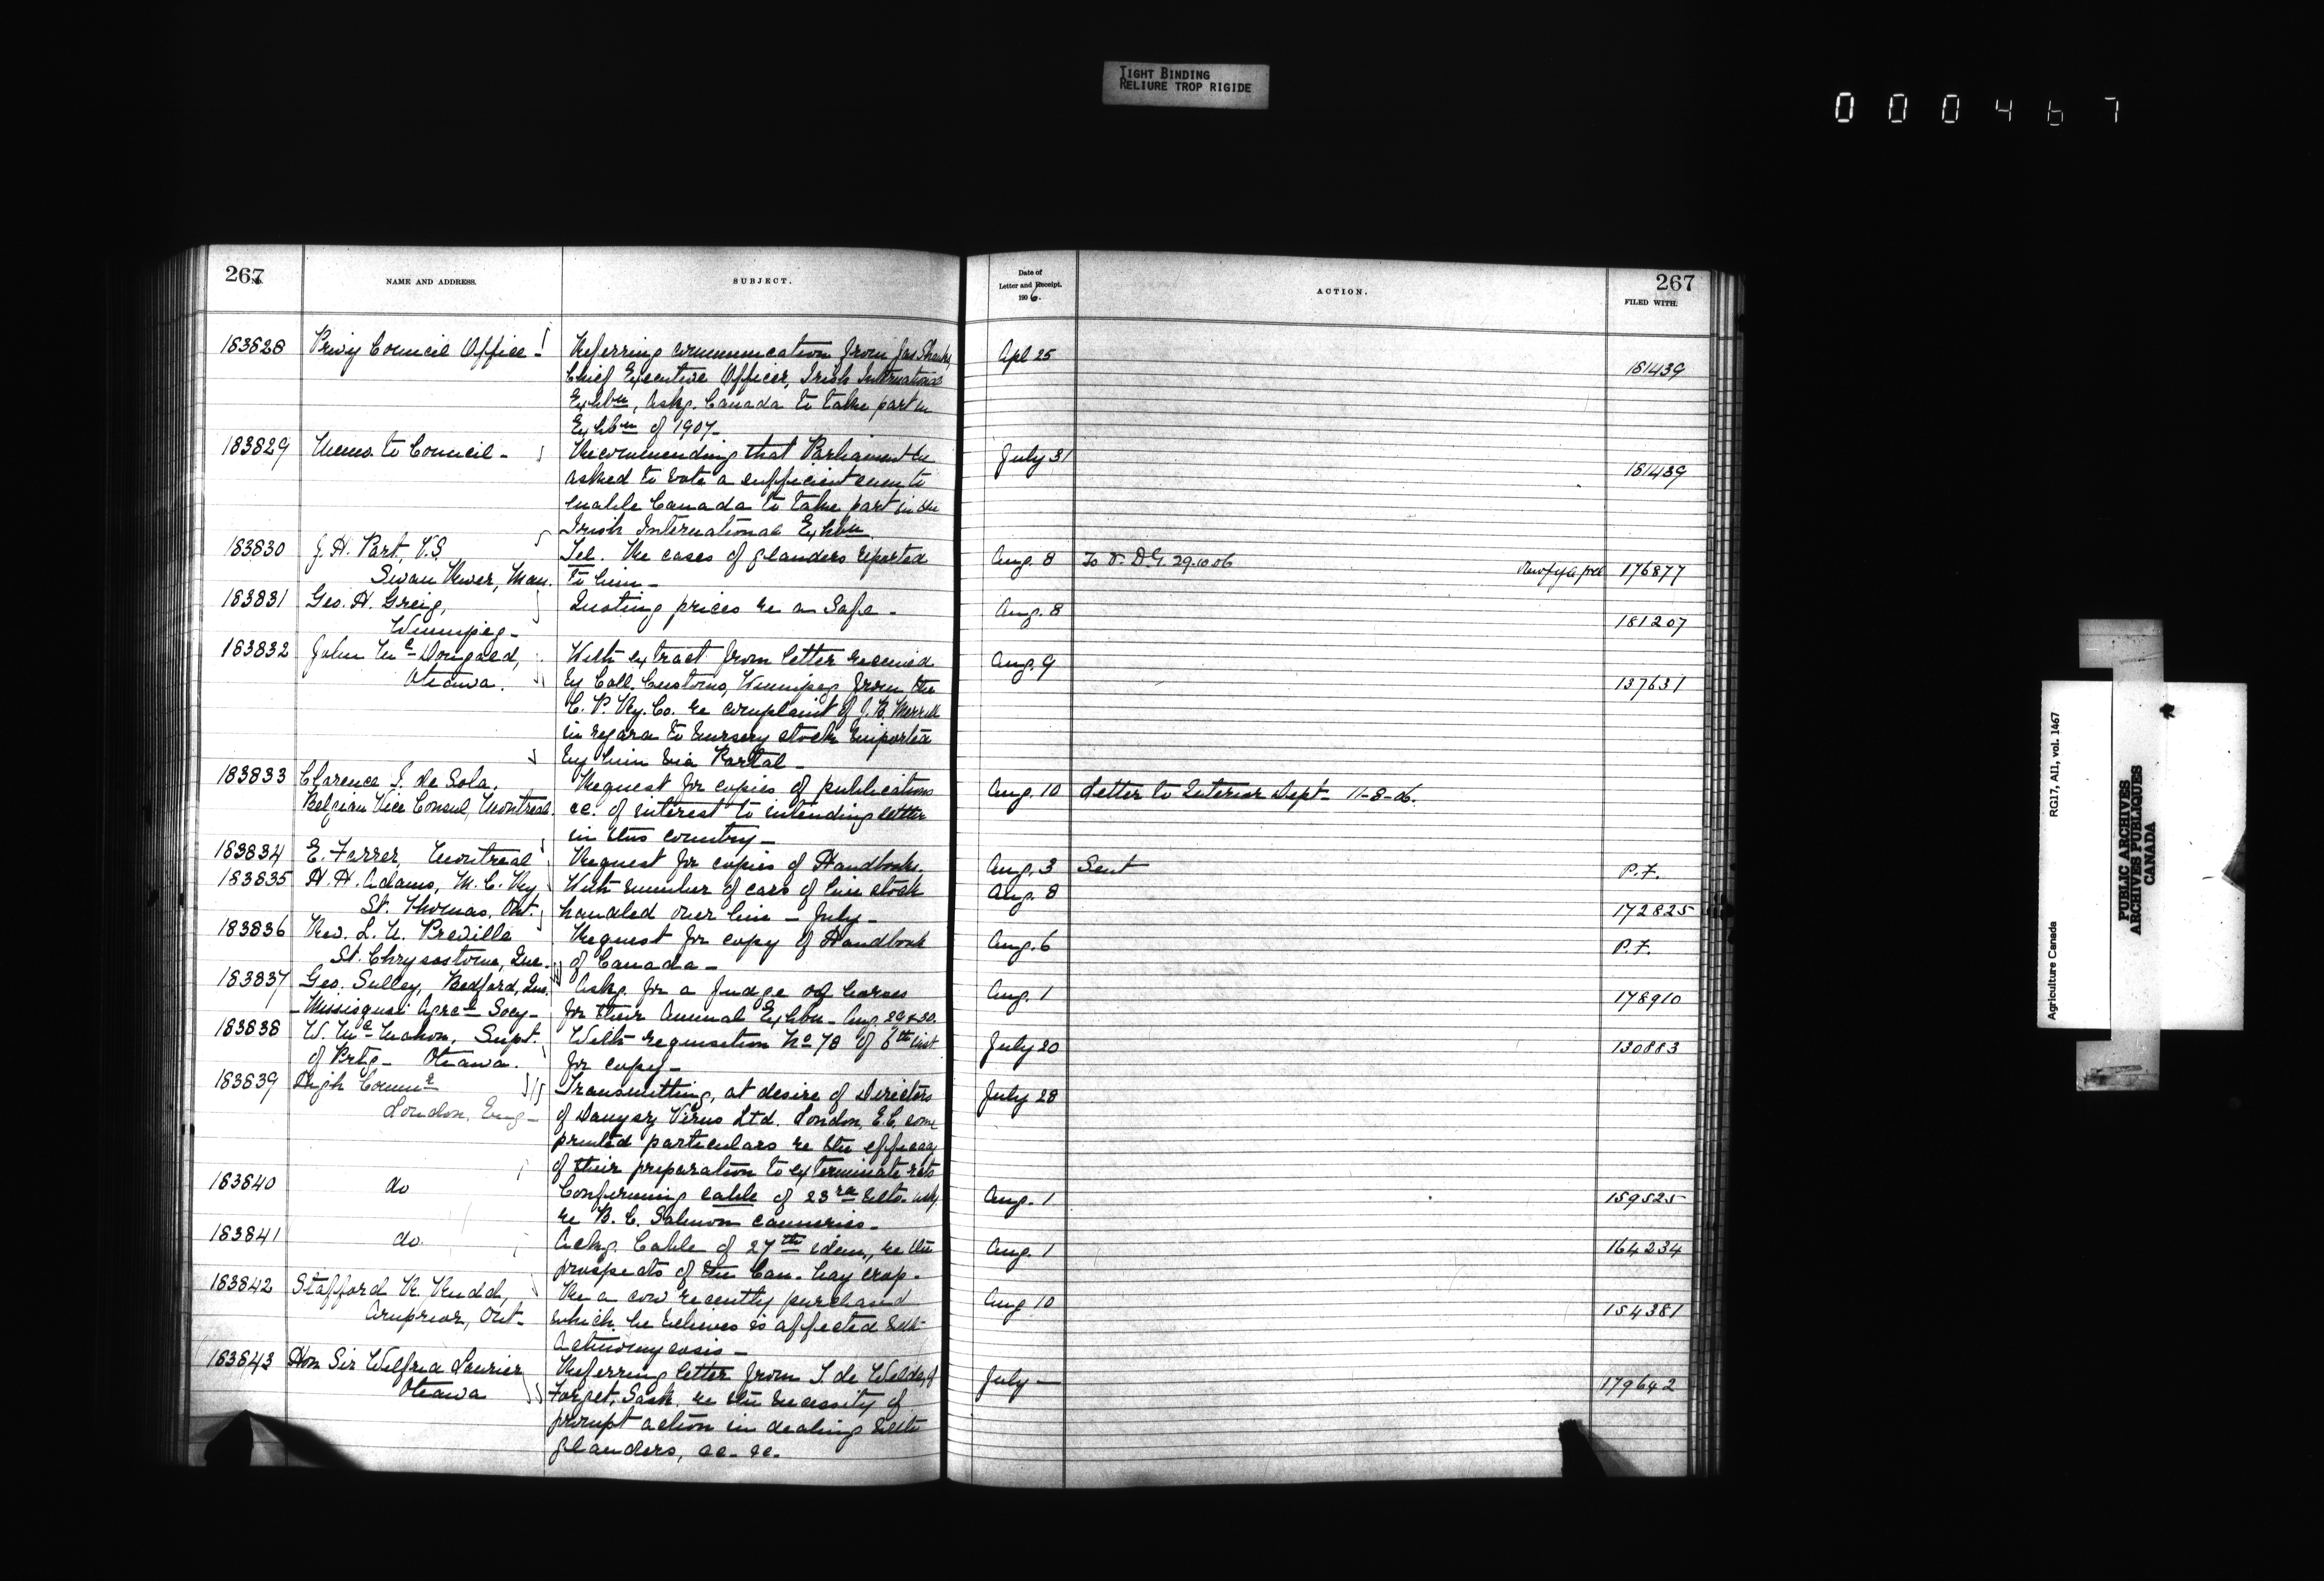 TIGHT BINDING
RELIURE TROP RIGIDE
000467
267
NAME AND ADDRESS.
SUBJECT.
Date of
Letter and Receipt.
1906.
ACTION.
267
FILED WITH.
183828 Privy Council Office - Referring communication from Jas Shanks, Apl 25
Chief Executive Officer, Irish International 181439
Exhbn, askg. Canada to take part in
Exhbn of 1907-
183829 Memo. to Council - Recommending that Parliament be July 31
asked to vote a sufficient sum to 181439
enable Canada to take part in the
Irish International Exhbn.
183830 J. H. Part, V.S. Tel. Re cases of glanders reported Aug. 8 To V. D. G. 29.10.06
Swan River, Man. to him - 176877
183831 Geo. H. Greig, Quoting prices re a Safe - Aug. 8
Winnipeg - 181207
183832 John McDougald, With extract from letter received Aug. 9
Ottawa. by Coll. Customs, Winnipeg from the 137631
C. P. Ry. Co. re complaint of J. B. Merrill
in regard to nursery stock imported
by him via Portal -
183833 Clarence I. de Sola, Request for copies of publications Aug. 10 Letter to Interior Dept - 11-8-06.
Belgian Vice Consul, Montreal. &c. of interest to intending settlers
in this country -
183834 E. Farrer, Montreal Request for copies of Handbooks. Aug. 3 Sent P.F.
183835 H. H. Adams, M. C. Ry With number of cars of live stock Aug. 8
St. Thomas, Ont. handled over line - July - 172825
183836 Rev. L. U. Preville Request for copy of Handbook Aug. 6 P.F.
St. Chrysostome, Que. of Canada -
183837 Geo. Sulley, Bedford, Que. Askg. for a Judge of horses Aug. 1 178910
- Missisquoi Agrel Socy - for their Annual Exhbn - Aug. 29 & 30.
183838 W. McMahon, Supt. With requisition No 78 of 6th inst July 20 130883
of Prtg - Ottawa. for copy -
183839 High Commr Transmitting, at desire of Directors July 28
London, Eng - of Danysz Virus Ltd. London, E.C, some
printed particulars re the efficacy
of their preparation to exterminate rats
183840 do Confirming cable of 23rd ulto. Aug. 1 159525
re B. C. Salmon canneries -
183841 do. Ackg. Cable of 27th idem, re the Aug. 1 164234
prospects of the Can. hay crop -
183842 Stafford R. Rudd, Re a cow recently purchased Aug 10
Arnprior, Ont - which he believes is affected with 154381
Actinomycosis -
183843 Hon Sir Wilfrid Laurier Referring letter from T. de Welde, of July - 179642
Ottawa Forget, Sask. re the necessity of
prompt action in dealing with
glanders, &c. &c.
Agriculture Canada RG17, AII, vol. 1467
PUBLIC ARCHIVES
ARCHIVES PUBLIQUES
CANADA